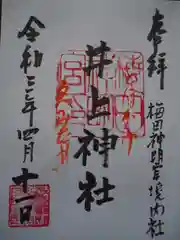 奉拝
梅田神明宮境内社
井上神社
令和三年四月十一日